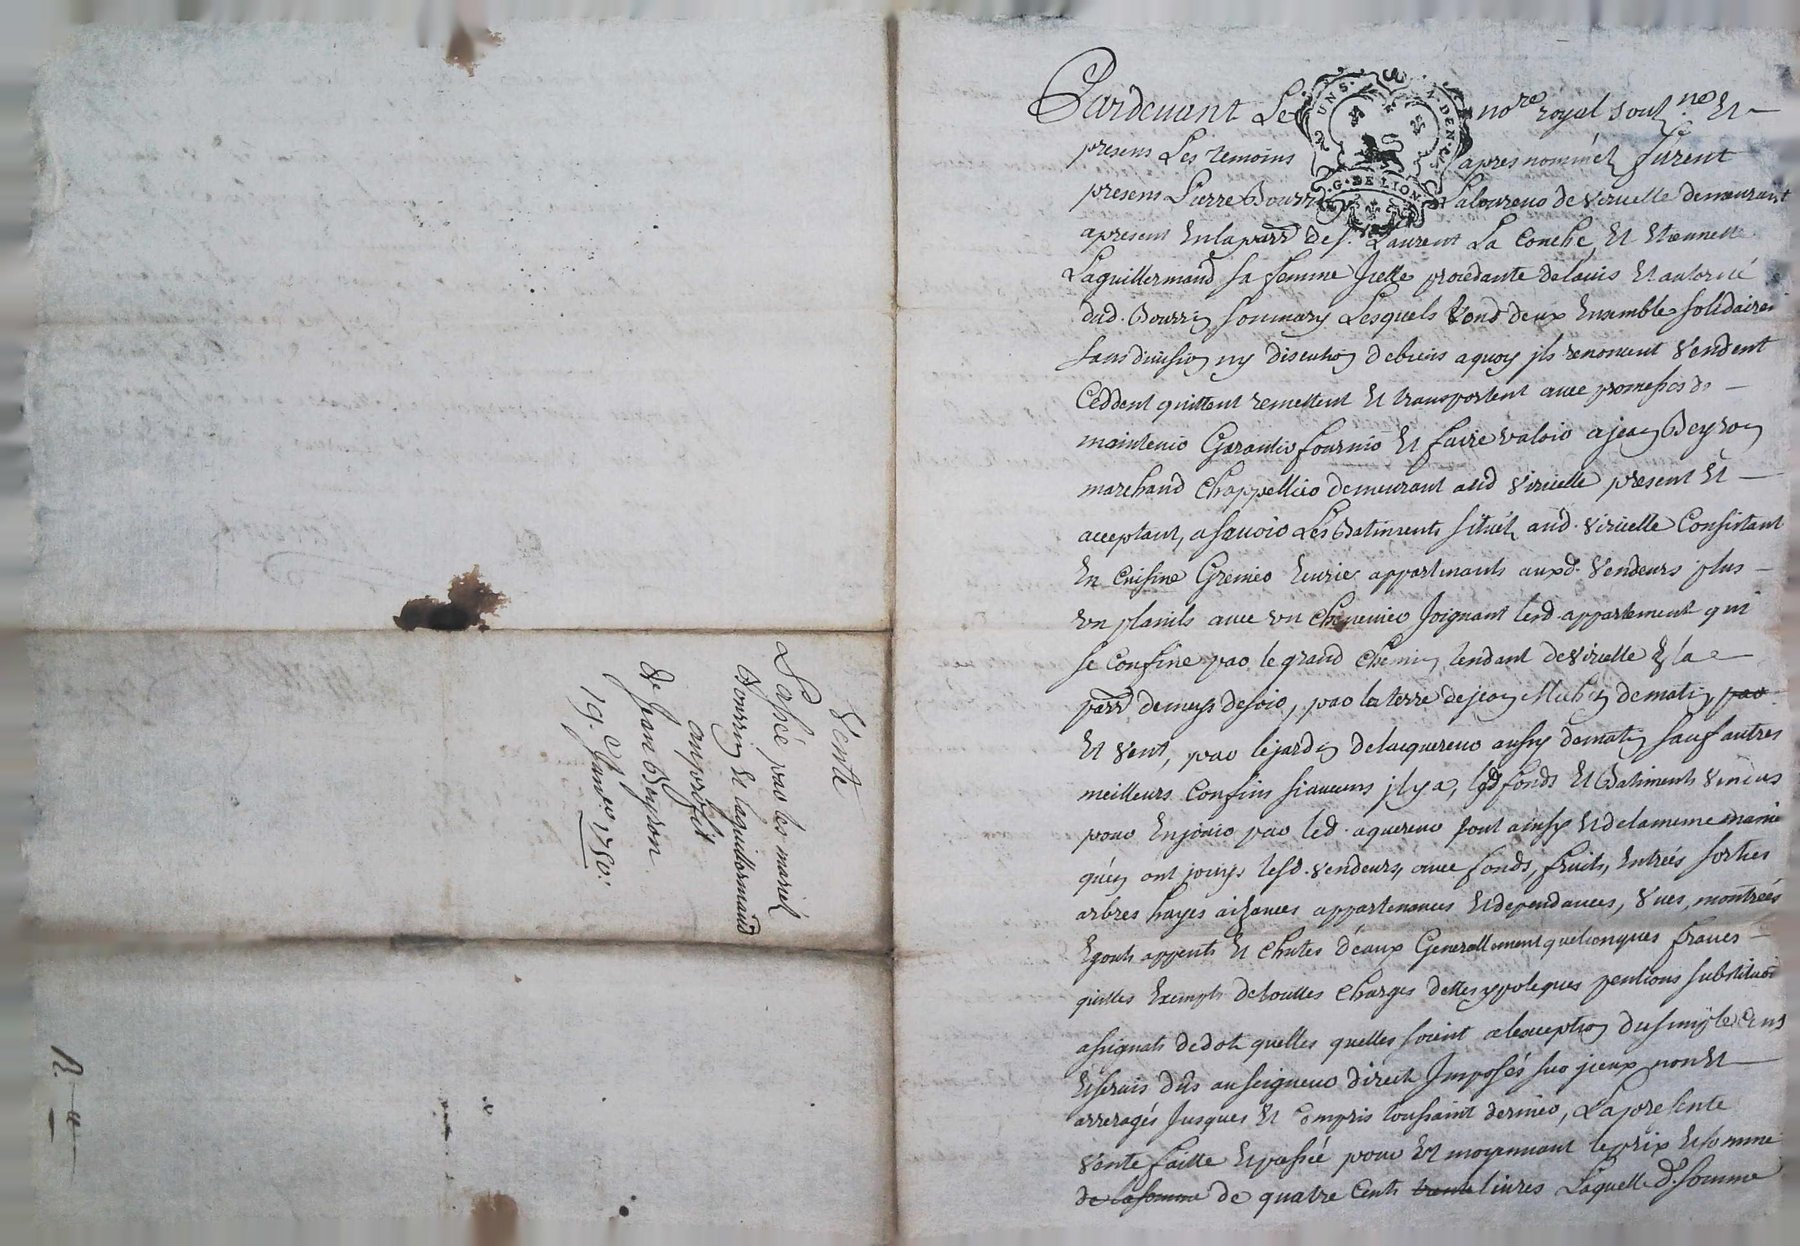 Vente
Passé par les mariés
Bourrin et laguillermand
au profit
de Jean Beyron
19. Janer. 1780.
Pardevant Le nore royal soussne. Et
presens Les temoins apres nommés furent
presens Pierre Bourrin Laboureur de Viricelle demeurant
apresent En la parr. de st. Laurent La Conche, Et Etiennette
Laguillermand sa femme Icelle procedante de lavis Et autorité
dud. Bourrin son mary Lesquels tous deux Ensemble solidaires
sans division ny discution de biens a quoy ils renoncent Vendent
Ceddent quittent remettent Et transportent avec promesses de
maintenir Garantir fournir Et faire valoir a jean Beyron
marchand Chappellier demeurant aud Viricelle present Et
acceptant, a savoir Les Batiments situés aud. Viricelle Consistant
En Cuisine Grenier Ecurie appartenants auxd. Vendeurs plus
un plassis avec un Chenevier Joignant lesd. appartement qui
se Confine par le grand Chemin tendant de Viricelle En la
parr. de meys de soir, par la terre de jean de matin, par
Et Vent, par le jardin de lacquereur aussy de matin sauf autres
meilleurs Confins si aucuns jl y a, lesd fonds Et Batiments Vendus
pour En jouir par led. aquereur tout ainsy Et de la meme manie
qu'en ont jouys lesd. Vendeurs avec fonds, fruits, Entrées sorties
arbres hayes aizances appartenances Et dependances, Vues, montrées
Egouts appents Et Chutes d'eaux Generallement quelconques francs
quittes Exempts de touttes Charges dettes ypoteques pentions substitution
assignats de dot quelles quelles soient a lexception du simple Cens
Et servis dûs au seigneur direct Imposés sur jceux non Et
arreragés Jusques Et Compris toussaint dernier, La presente
Vente faitte Et passée pour Et moyennant le prix Et somme
de la somme de quatre Cents trente livres Laquelle d. somme
G. DE LION